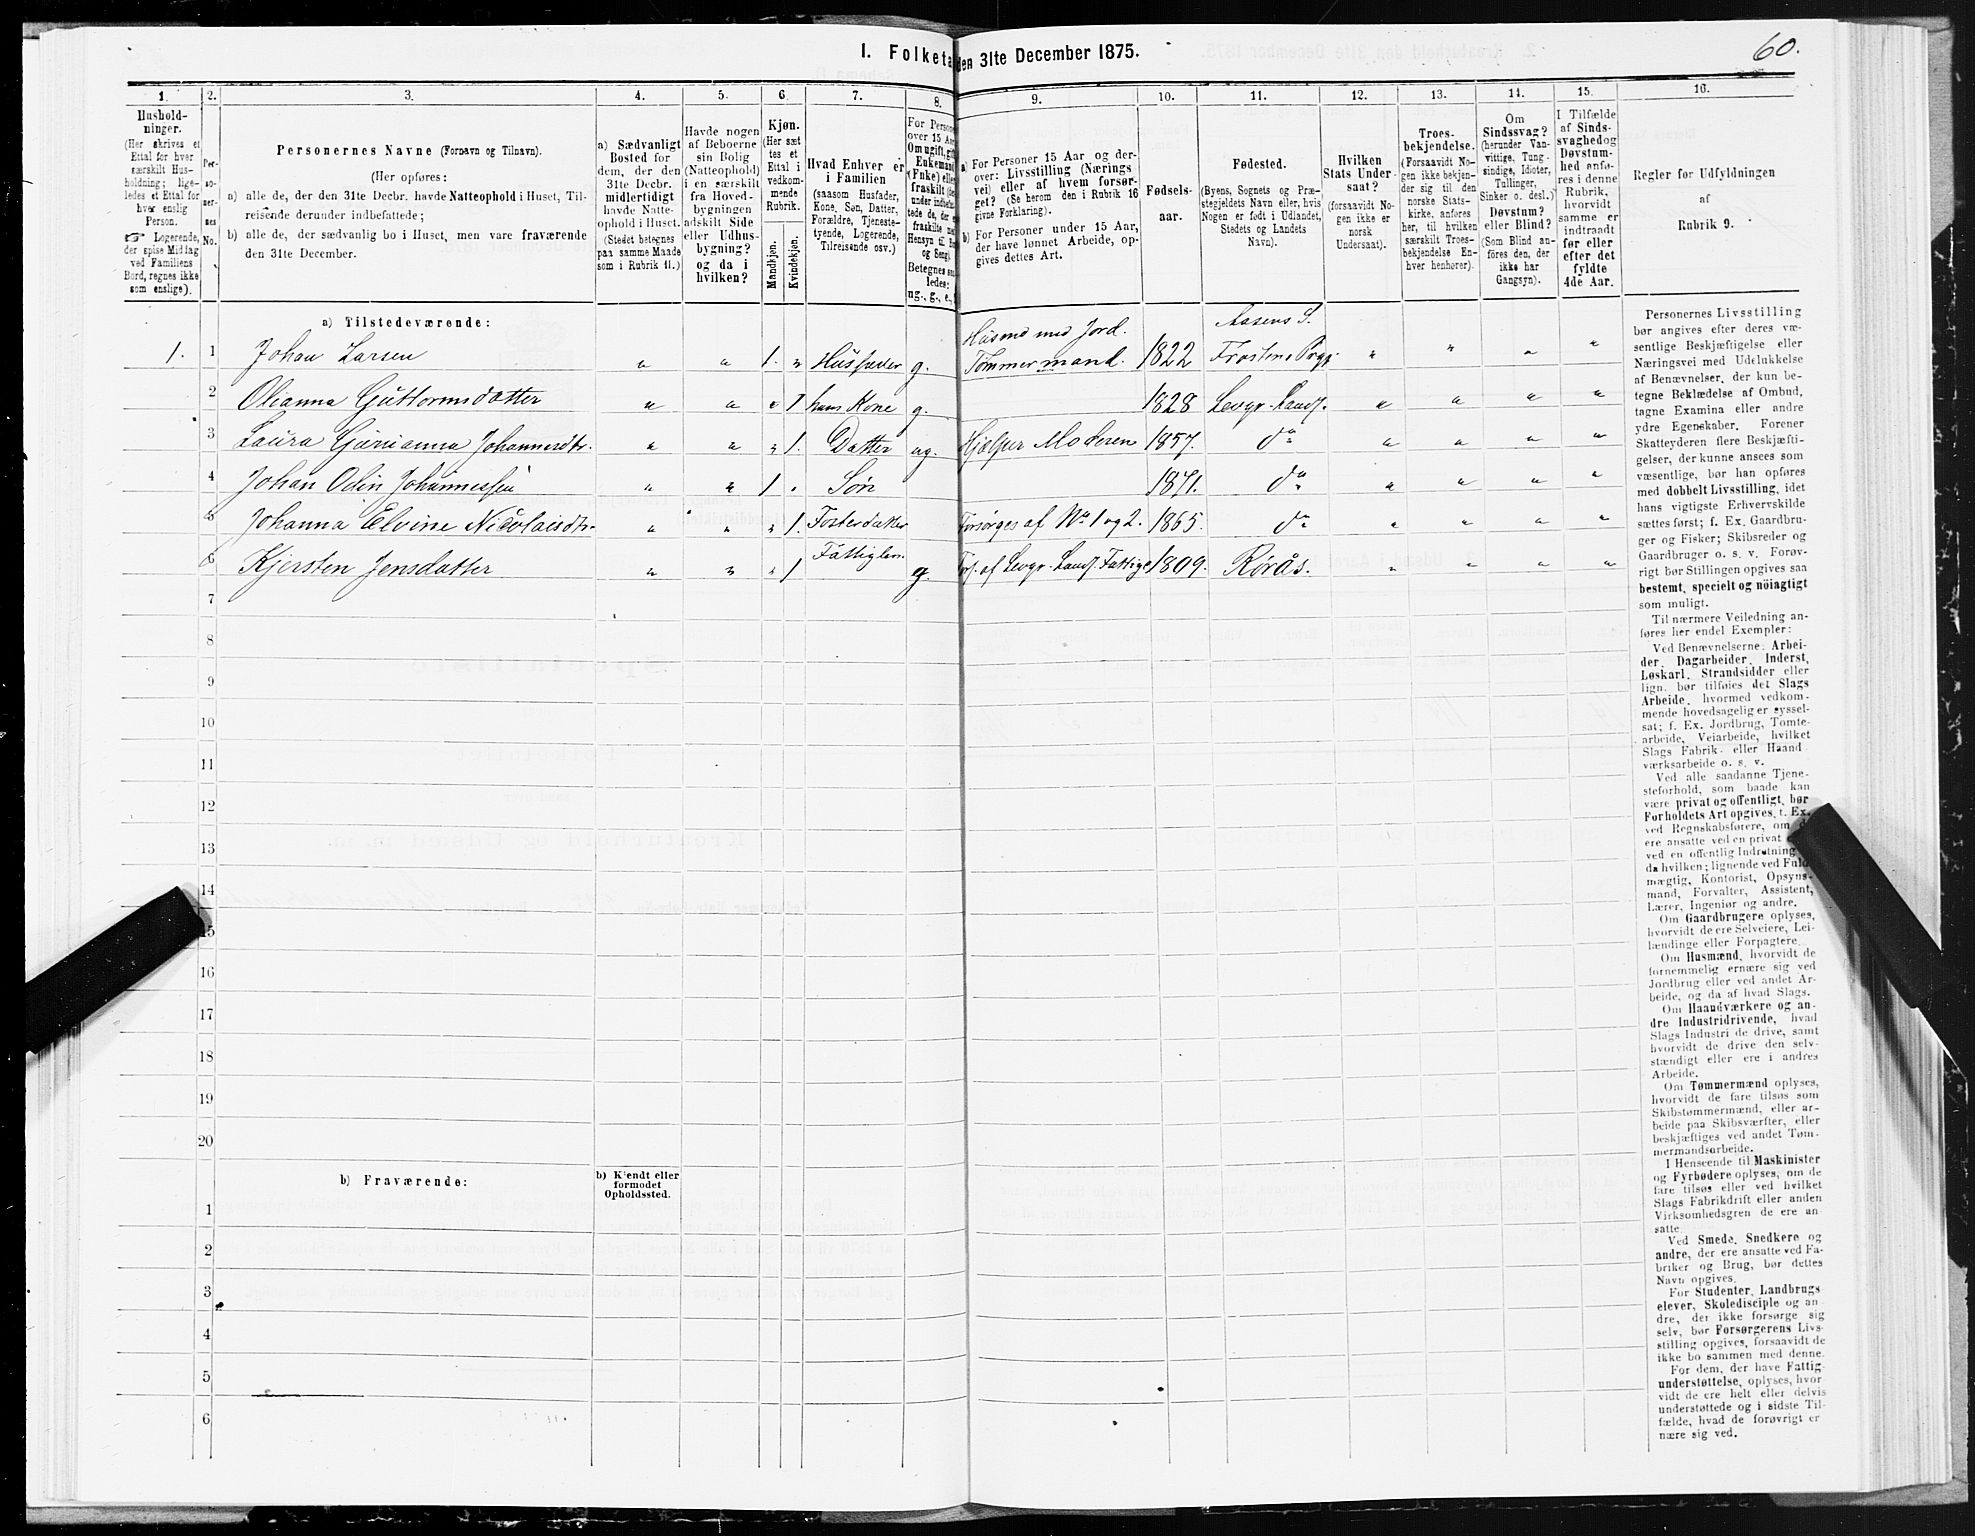 I. Folketa den 31te December 1875.
60.
1.
Hushold-
ninger.
(Her skrives et
Ettal for hver
særskilt Hus-
holdning; lige-
ledes et Ettal for
hver enslig
Person.
☞ Logerende,
der spise Middag
ved Familiens
Bord, regnes ikke
som enslige).
2.
Per-
so-
ner-
nes
No.
3.
Personernes Navne (Fornavn og Tilnavn).
(Her opføres:
a) alle de, der den 31te Decbr. havde Natteophold i Huset, Til-
reisende derunder indbefattede;
b) alle de, der sædvanlig bo i Huset, men vare fraværende
den 31te December.
4.
a) Sædvanligt
Bosted for
dem, der den
31te Decbr.
midlertidigt
havde Natte-
ophold i Huset.
(Stedet betegnes
paa samme Maade
som i Rubrik 11.)
5.
Havde nogen
af Beboerne
sin Bolig
(Natteophold)
i en særskilt
fra Hoved-
bygningen
adskilt Side
eller Udhus-
bygning?
og da i
hvilken?
6.
Kjøn.
(Her sæt
tes et
Ettal i
vedkom-
mende
Rubrik.
Mandkjøn.
Kvindekjøn.
7.
Hvad Enhver er
i Familien
(saasom Husfader,
Kone, Søn, Datter,
Forældre, Tjeneste-
tyende, Logerende,
Tilreisende osv.)
8.
For Persone
over 15 Aar
Om ugift, gift
Enkemand
(Enke) eller
fraskilt (der
under indbefat-
tede de, der e
fraskilte me
Hensyn til Bo
og Seng).
Betegnes saa
ledes:
ug., g., e., f
9.
a) For Personer 15 Aar og der-
over: Livsstilling (Nærings
vei) eller af hvem forsør-
get? (Se herom den i Rubrik 16
givne Forklaring).
b) For Personer under 15 Aar,
der have lønnet Arbeide, op-
gives dettes Art.
10.
Fødsels-
aar.
11.
Fødested.
(Byens, Sognets og Præ-
stegjeldets Navn eller, hvis
Nogen er født i Udlandet,
Stedets og Landets
Navn).
12.
Hvilken
Stats Under-
saat?
(forsaavidt No-
gen ikke er
norsk
Undersaat).
13.
Troes-
bekjendelse.
(Forsaavidt No-
gen ikke bekjen-
der sig til den
norske Stats-
kirke, anføres
her, til hvilken
særskilt Troes-
bekjendelse En-
hver henhører).
14.
Om
Sindssvag?
(herunder Van-
vittige, Tung-
sindige, Idioter,
Tullinger,
Sinker o. desl.)
Døvstum?
eller Blind?
(Som Blind an-
føres den, der
ikke har
Gangsyn).
15.
I Tilfælde
af Sinds-
svaghed og
Døvstum-
hed anfø-
res i denne
Rubrik,
hvorvidt
samme er
indtraadt
før eller
efter det
fyldte
4de Aar.
16.
Regler for Udfyldningen
af
Rubrik 9.
a) Tilstedeværende:
Husmd med Jord. Aasens S.
1. 1 Johan Larsen " " 1. " Husfader g. Tømmermand. 1822 Frostens Prgj. " " " "
2 Olianna Guttormsdatter " " " 1 hans Kone g. 1828 Levgr. Lands. " " " "
3 Laura Gurianna Johannesdtr. " " " 1. Datter ug. Hjælper Moderen 1857. do " " " "
4 Johan Odin Johannessen " " 1 " Søn 1871. do " " " "
5 Johanna Elvine Nicolaisdtr. " " " 1. Fosterdatter Forsørges af No 1 og 2. 1865. do " " " "
6 Kjersten Jensdatter " " " 1 Fattiglem. g. Fors. af Levgr. Lands. Fattige 1809. Rørås. " " " "
7
8
9
10
11
12
13
14
15
16
17
18
19
20
b) Fraværende:
b) Kjendt eller
formodet
Opholdssted.
1
2
3
4
5
6
Personernes Livsstilling
bør angives efter deres væ-
sentlige Beskjæftigelse eller
Næringsvei med Udelukkelse
af Benævnelser, der kun be-
tegne Beklædelse af Ombud,
tagne Examina eller andre
ydre Egenskaber. Forener
Skatteyderen flere Beskjæfti-
gelser, der kunne ansees som
væsentlige, bør han opføres
med dobbelt Livsstilling, idet
hans vigtigste Erhvervskilde
sættes først; f. Ex. Gaardbru-
ger og Fisker; Skibsreder og
Gaardbruger o. s. v. Forøv-
rigt bør Stillingen opgives saa
bestemt, specielt og nøiagtigt
som muligt.
Til nærmere Veiledning an-
føres her endel Exempler:
Ved Benævnelserne: Arbei-
der, Dagarbeider, Inderst,
Løskarl, Strandsidder eller
lign. bør tilføies det Slags
Arbeide, hvormed vedkom-
mende hovedsagelig er syssel-
sat; f. Ex. Jordbrug, Tomte-
arbeide, Veiarbeide, hvilket
Slags Fabrik- eller Haand
værksarbeide o. s. v.
Ved alle saadanne Tjene-
steforhold, som baade kan
være privat og offentligt, bør
Forholdets Art opgives, t. Ex.
ved Regnskabsførere, om d
ere ansatte ved en privat
ved en offentlig Indretning
da hvilken; lignende ved Fuld-
mægtig, Kontorist, Opsyns-
mand, Forvalter, Assistent,
Lærer, Ingeniør og andre.
Om Gaardbrugere oplyses,
hvorvidt de ere Selveiere, Lei-
lændinge eller Forpagtere.
Om Husmænd, hvorvidt de
fornemmelig ernære sig ved
Jordbrug eller ved andet Ar-
beide, og da af hvad Slags.
Om Haandværkere og an-
dre Industridrivende, hvad
Slags Industri de drive, samt
hvorvidt de drive den selv-
stændigt eller ere i andres
Arbeide.
Om Tømmermænd oplyses,
hvorvidt de fare tilsøs som
Skibstømmermænd, eller ar-
beide paa Skibsværfter, eller
beskjæftiges ved andet Tøm-
mermandsarbeide.
I Henseende til Maskinister
og Fyrbødere oplyses, om de
fare tilsøs eller ved hvilket
Slags Fabrikdrift eller anden
Virksomhedsgren de ere an-
satte.
Ved Smede, Snedkere og
andre, der ere ansatte ved Fa-
briker og Brug, bør dettes
Navn opgives.
For Studenter, Landbrugs-
elever, Skoledisciple og an-
dre, der ikke forsørge sig
selv, bør Forsørgerens Livs-
stilling opgives, forsaavidt de
ikke bo sammen med denne.
For dem, der have Fattig-
understøttelse, oplyses, hvor-
vidt de ere helt eller delvis
understøttede og i sidste Til-
fælde, hvad de forøvrigt er
nære sig ved.